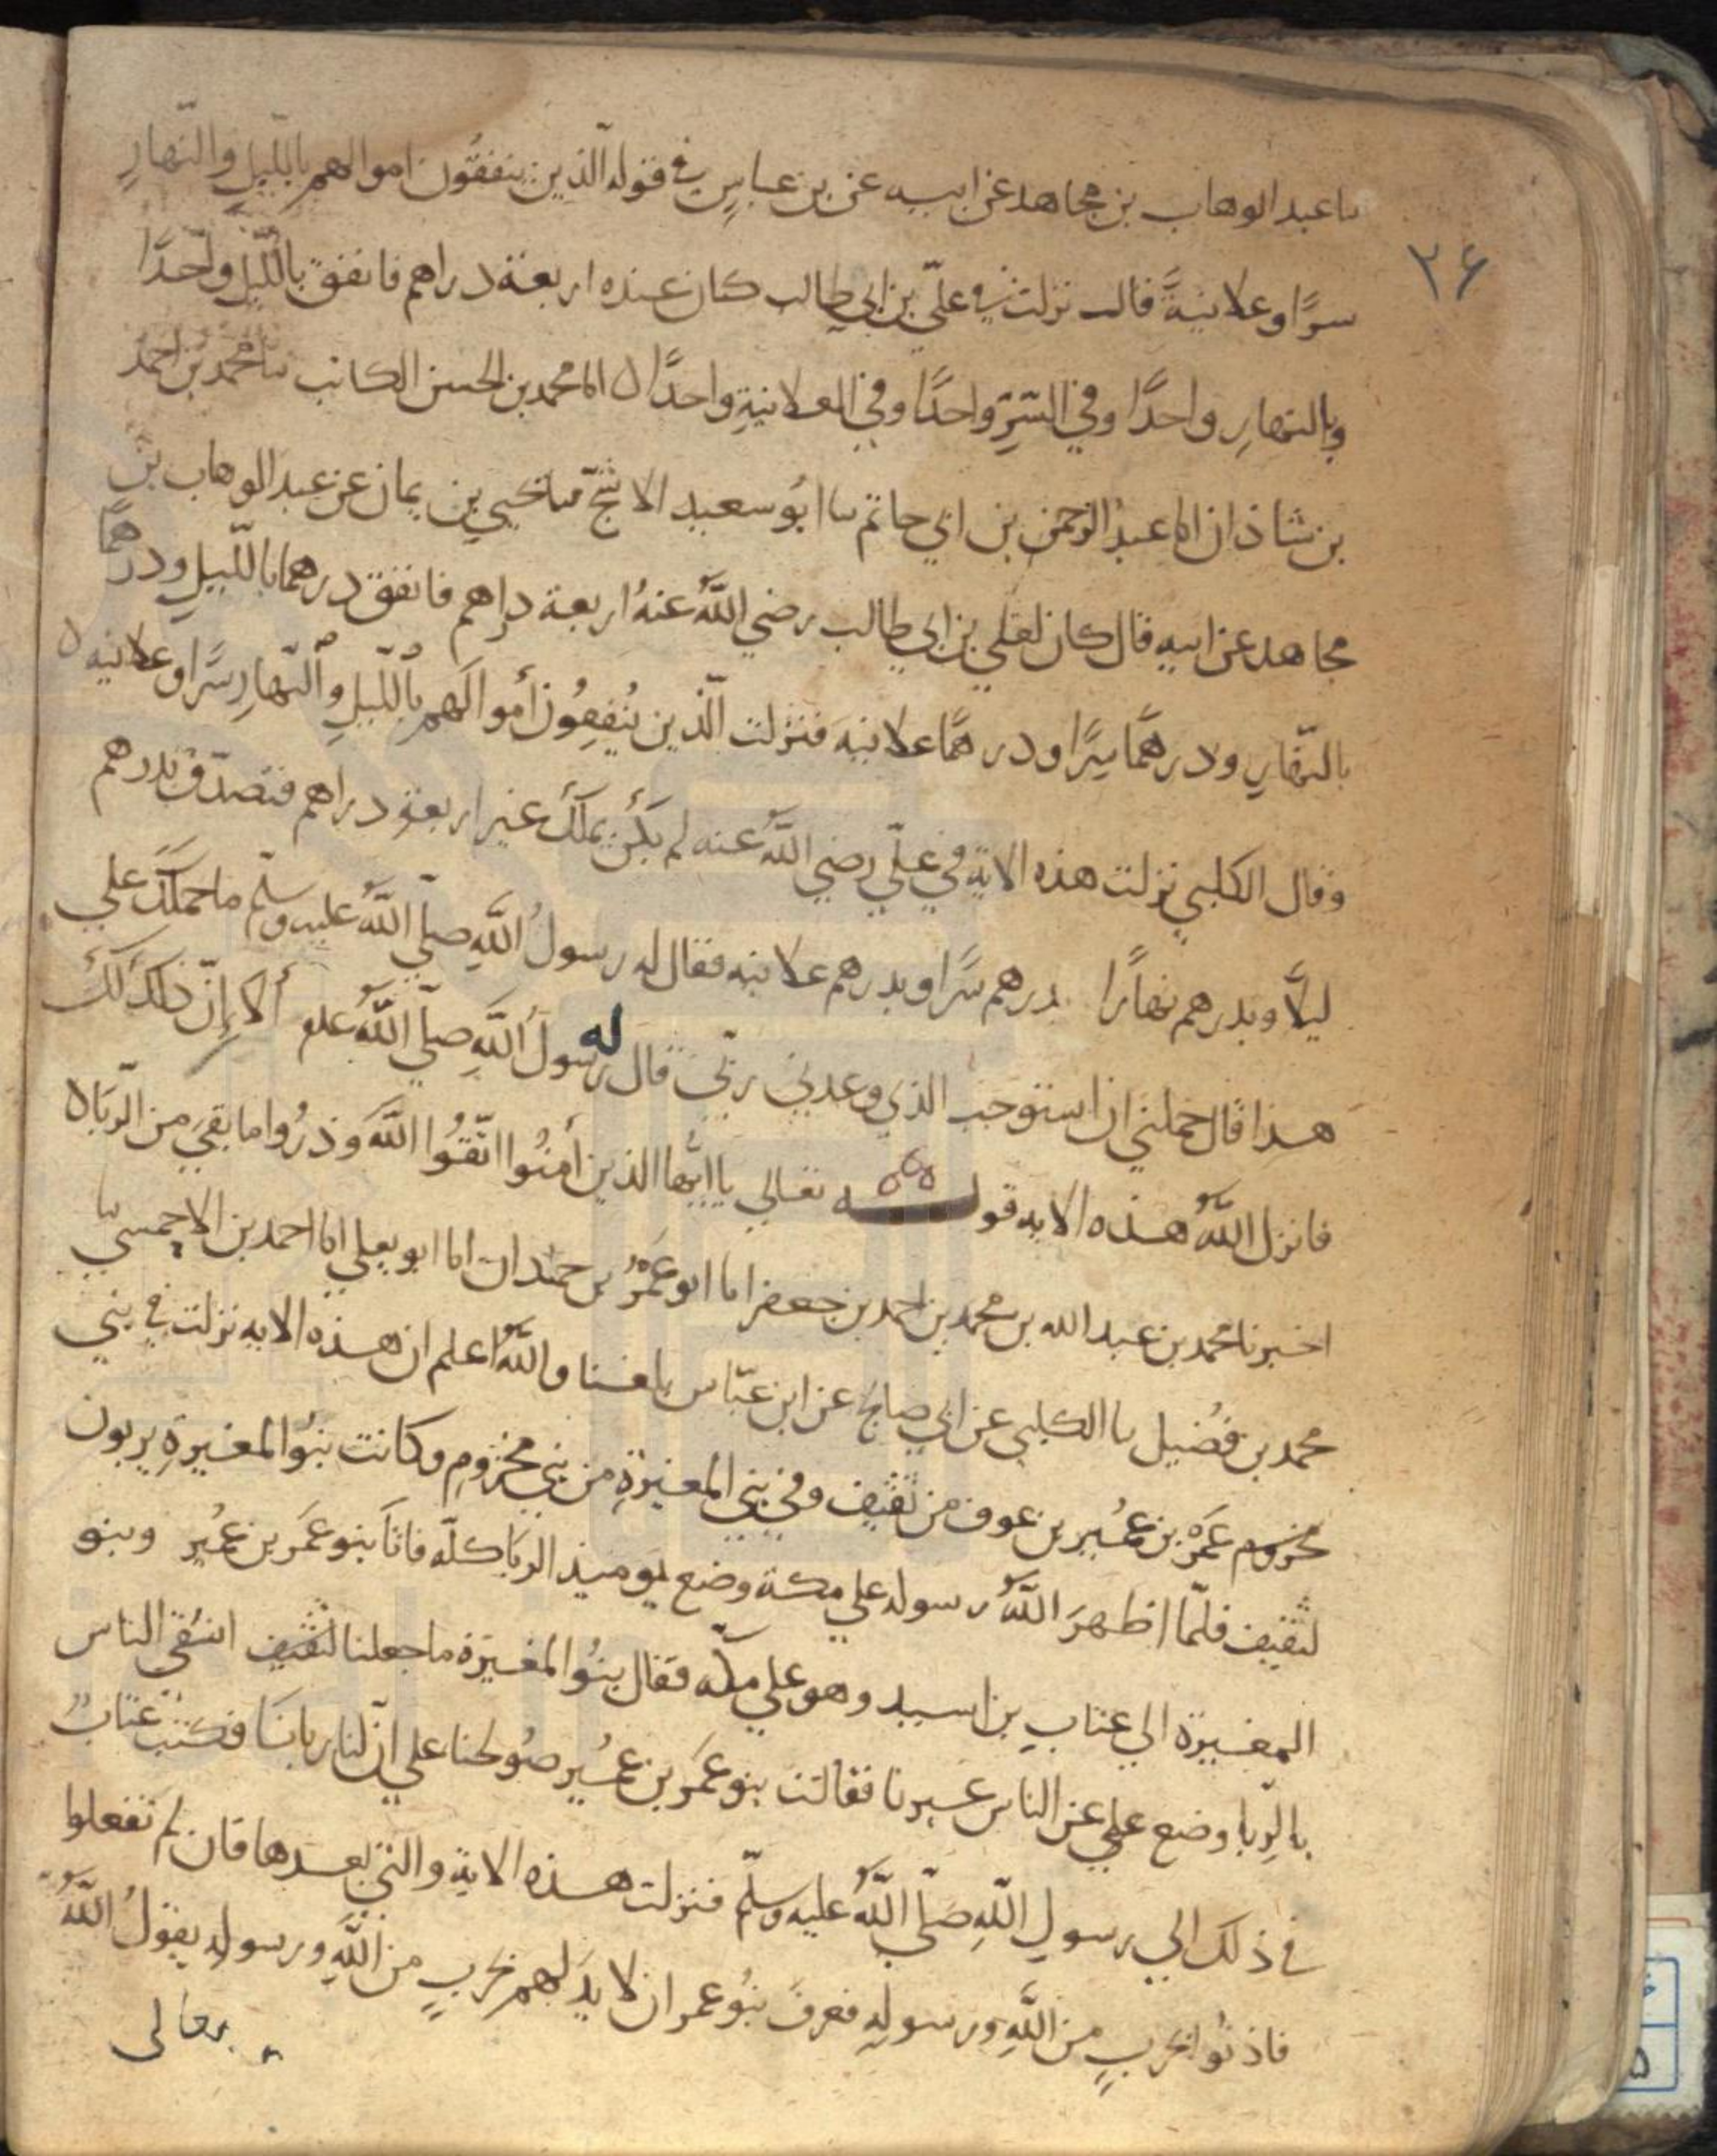 ىا عبد الوهاب بن مجاهد عن ابيه عن بن عباسٍ في قوله الّذين ينفقُون اموالهم باللّيلِ والنّهارِ
٢۶
سرًّا وعلانيةً قالـ نزلت في علىّ بن ابي طالب كان عنده اربعة دراهم فانفق باللّيلِ واحدًا
وبالنهارِ واحدًا وفي السّرِّ واحدًا وفي العلانيةِ واحدًا ن انا محمد بن الحسن الكاتب ىا محمد بن احمد
بن شاذان انا عبد الرحمن بن ابي حاتم ىا ابُو سعيد الاشجّ ىا يحيي بن يمان عن عبد الوهاب بن
مجاهد عن ابيه قال كان لعلي بن ابي طالب رضي اللّهُ عنهُ اربعة دراهم فانفق درهما باللّيلِ ودرهمًا
بالنّهارِ ودرهمًا سرًّا ودرهمًا علانيه فنزلت الّذين يُنفِقُون أموالَهم باللّيلِ والنّهارِ سرًّا وعلانيه ن
وقال الكلبي نزلت هذه الاية في علىّ رضي اللّهُ عنه لم يكُن يملكُ غير اربعة دراهم فتصدّق بدرهم
ليلًا وبدرهم نهارًا بدرهم سّرا وبدرهم علانيه فقال له رسولُ اللّهِ صلّي اللّهُ عليه وسلّم ما حملكَ علي
هذا قال حملني ان استوجب الذي وعدني ربّي قال له رسولُ اللّهِ صلّي اللّهُ علم ألا إنّ ذلك لك
فانزل اللّهُ هذه الايه قولـــه تعالي يا ايّها الذين أمنُوا اتّقُوا اللّهَ وذرُوا ما بقيَ من الرّبا ن
اخبرنا محمد بن عبد الله بن محمد بن احمد بن جعفر انا ابو عَمرُو بن حمدان انا ابو يعلي انا احمد بن الاحمسيّ ىا
محمد بن فُضيل ىا الكلبي عن ابي صالح عن ابن عبّاس بلغنا واللّهُ اعلم ان هذه الايه نزلت في بني
مخزوم عَمرو بن عُمير بن عوف من ثقيف وفي بني المغيرةِ من بني مخزوم وكانت بنُوا المغيرةِ يربون
لثقيف فلمّا اظهرَ اللّهُ رسوله علي مكة وضع يوميذ الربا كلّه فاتا بنو عمَر بن عُمير وبنو
المغيرة الي عتابِ بن اسيد وهو علي مكّه فقال بنُوا المغيرة ما جعلنا لثقيف اشقي الناس
بالرّبا وضع علي عن الناس غيرنا فقالت بنو عمَر بن عُمير صُولحنا علي انّ لنا ربانا فكتب عتابٌ
في ذلك الي رسولِ اللّهِ صلّي اللّهُ عليه وسلّم فنزلت هذه الاية والتي بعدها فان لم تفعلوا
فاذنُوا بحربٍ من اللّهِ ورسوله فعرفَ بنُو عمر ان لا يد لهم بحربٍ من اللّهِ ورسوله يقولُ اللّهُ
تعالى